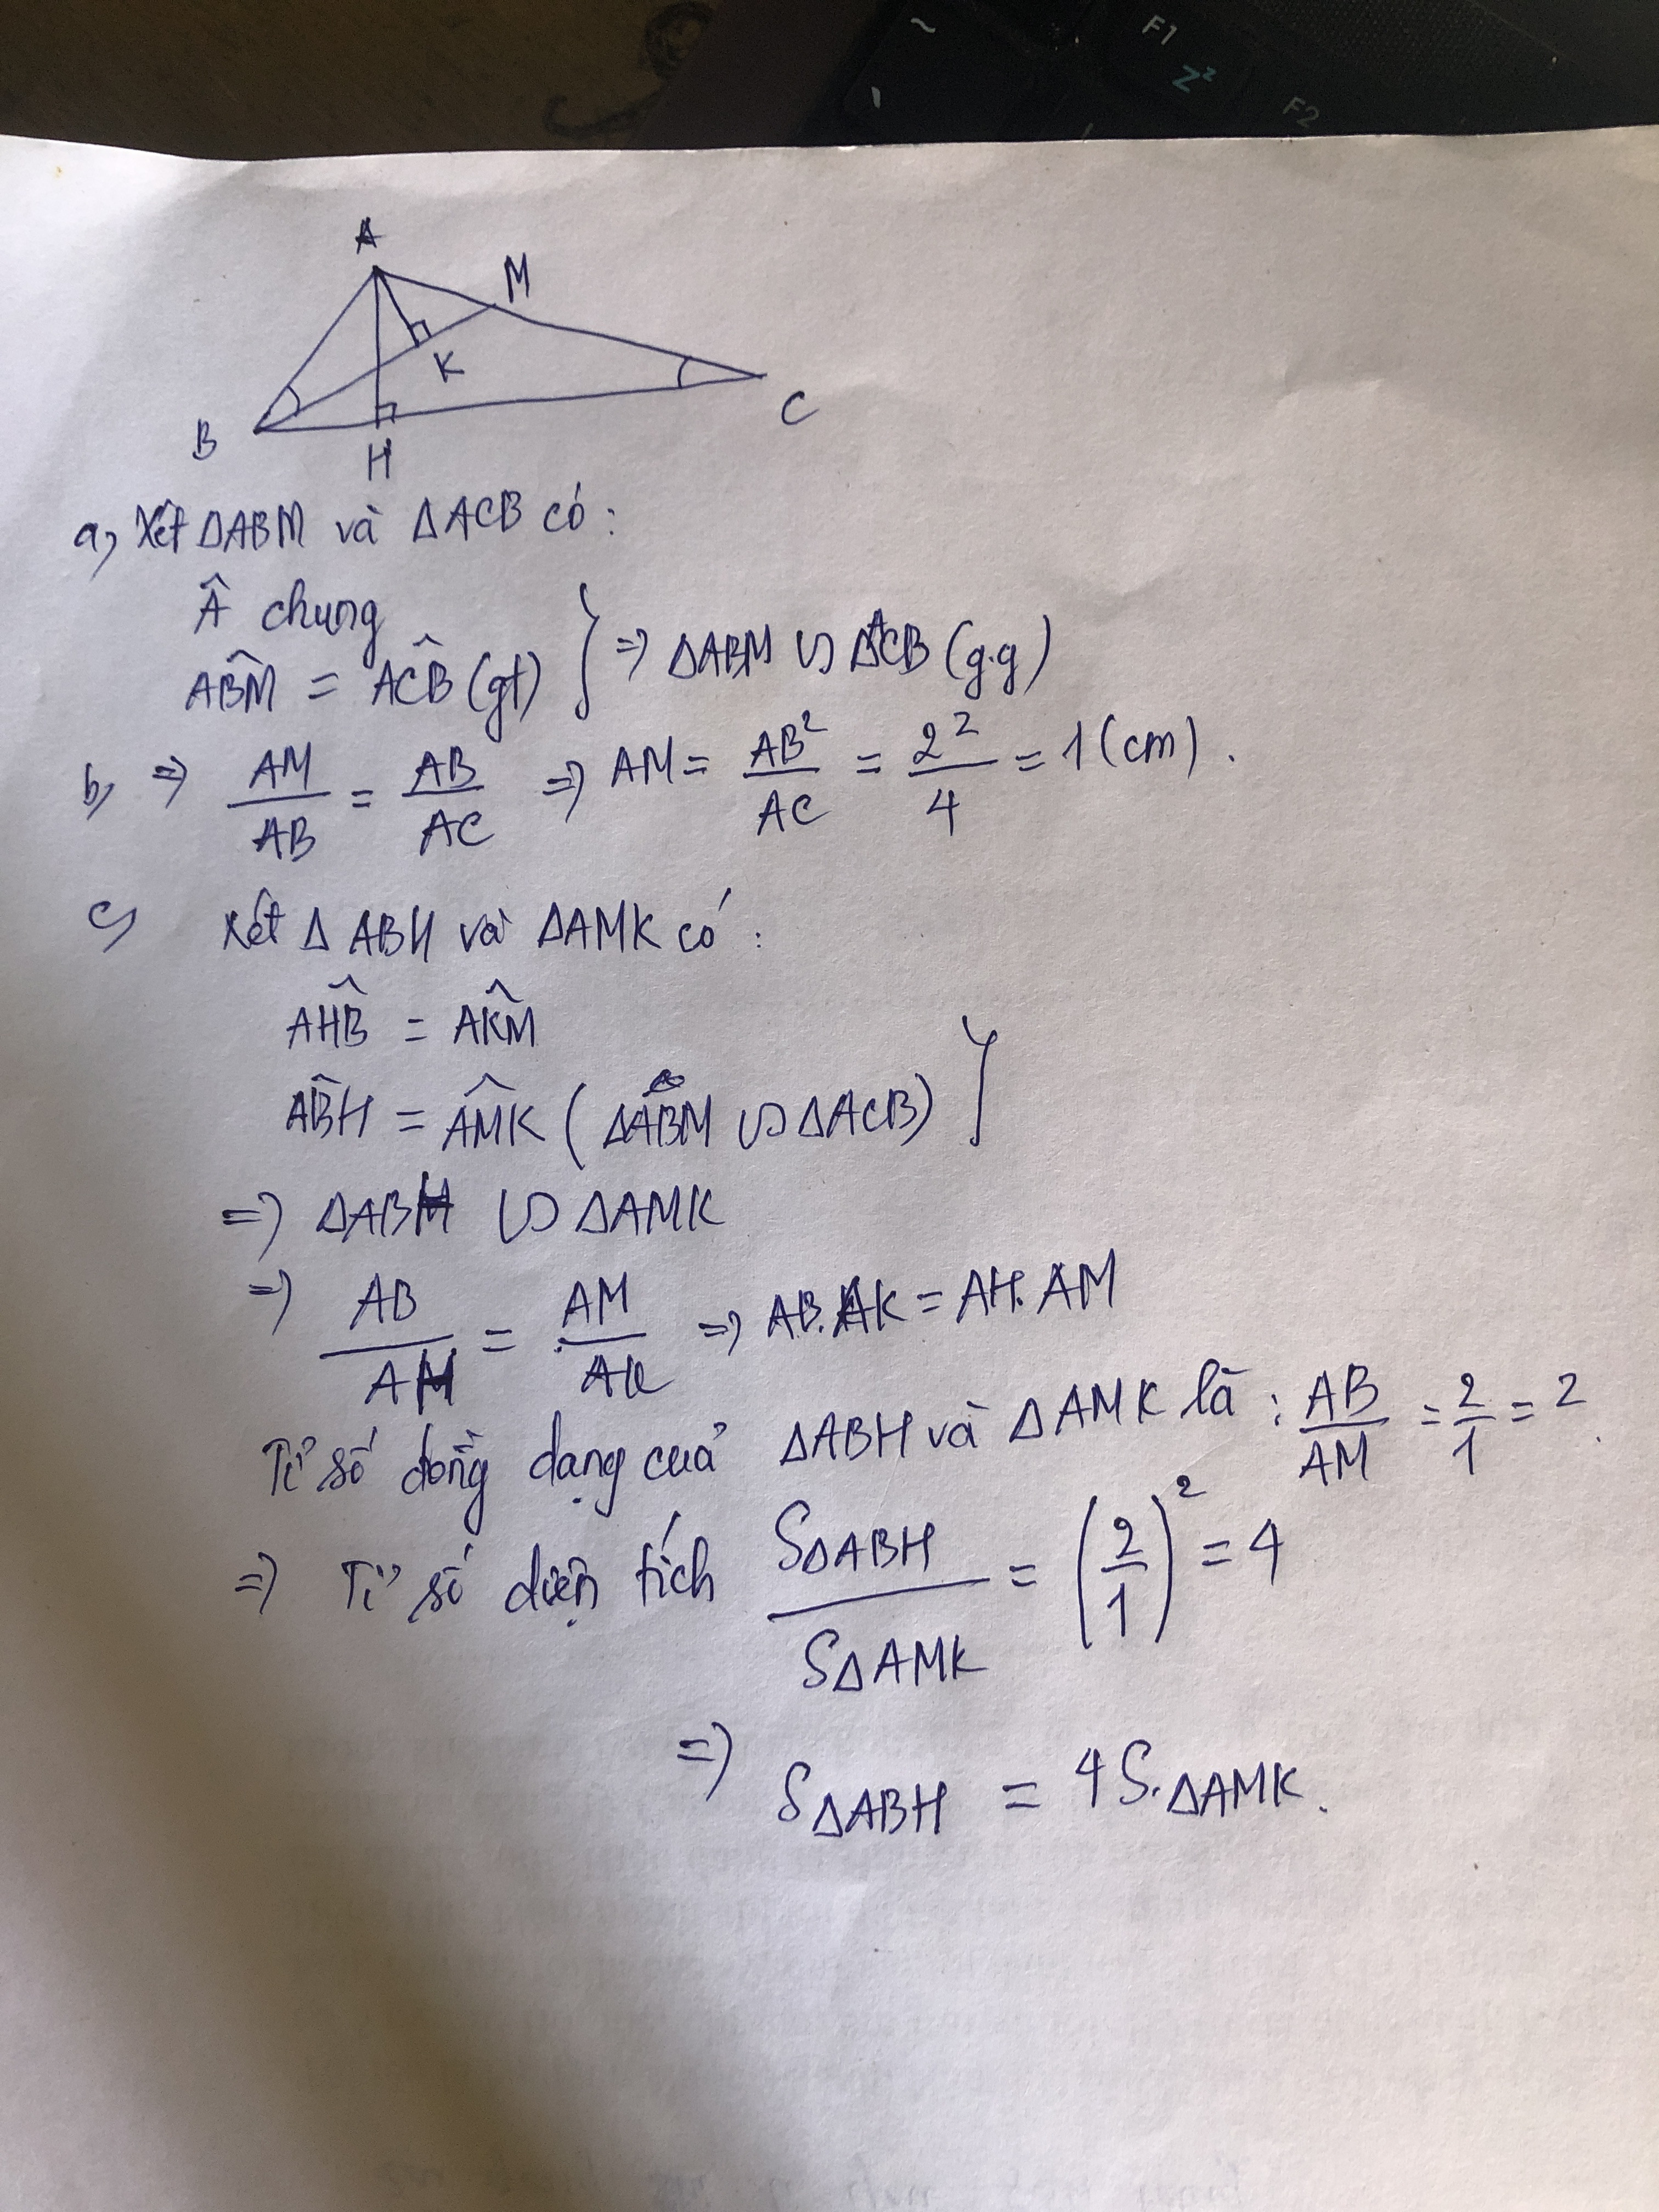 ~ F1 Zz F2
A
M
K
B
H
C
a, Xét ΔABM và ΔACB có:
 chung
ABM̂ = ACB̂ (gt) } => ΔABM ∽ ΔACB (g.g)
b, => AM/AB = AB/AC => AM = AB²/AC = 2²/4 = 1 (cm).
c, Xét Δ ABH và ΔAMK có:
AHB̂ = AKM̂
AB̂H = AM̂K (ΔABM ∽ ΔACB) }
=> ΔABH ∽ ΔAMK
=> AB/AH = AM/AK => AB.AK = AH.AM
Tỉ số đồng dạng của ΔABH và ΔAMK là: AB/AM = 2/1 = 2.
=> Tỉ số diện tích SΔABH/SΔAMK = (2/1)² = 4
=> SΔABH = 4S.ΔAMK.